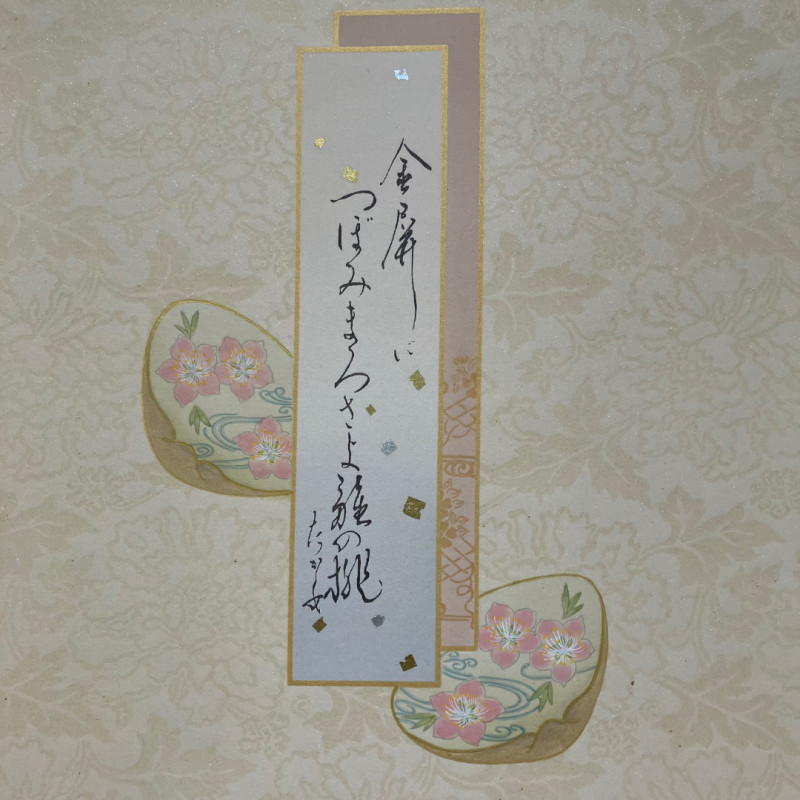 金屏に
つぼみまろさよ雛の桃